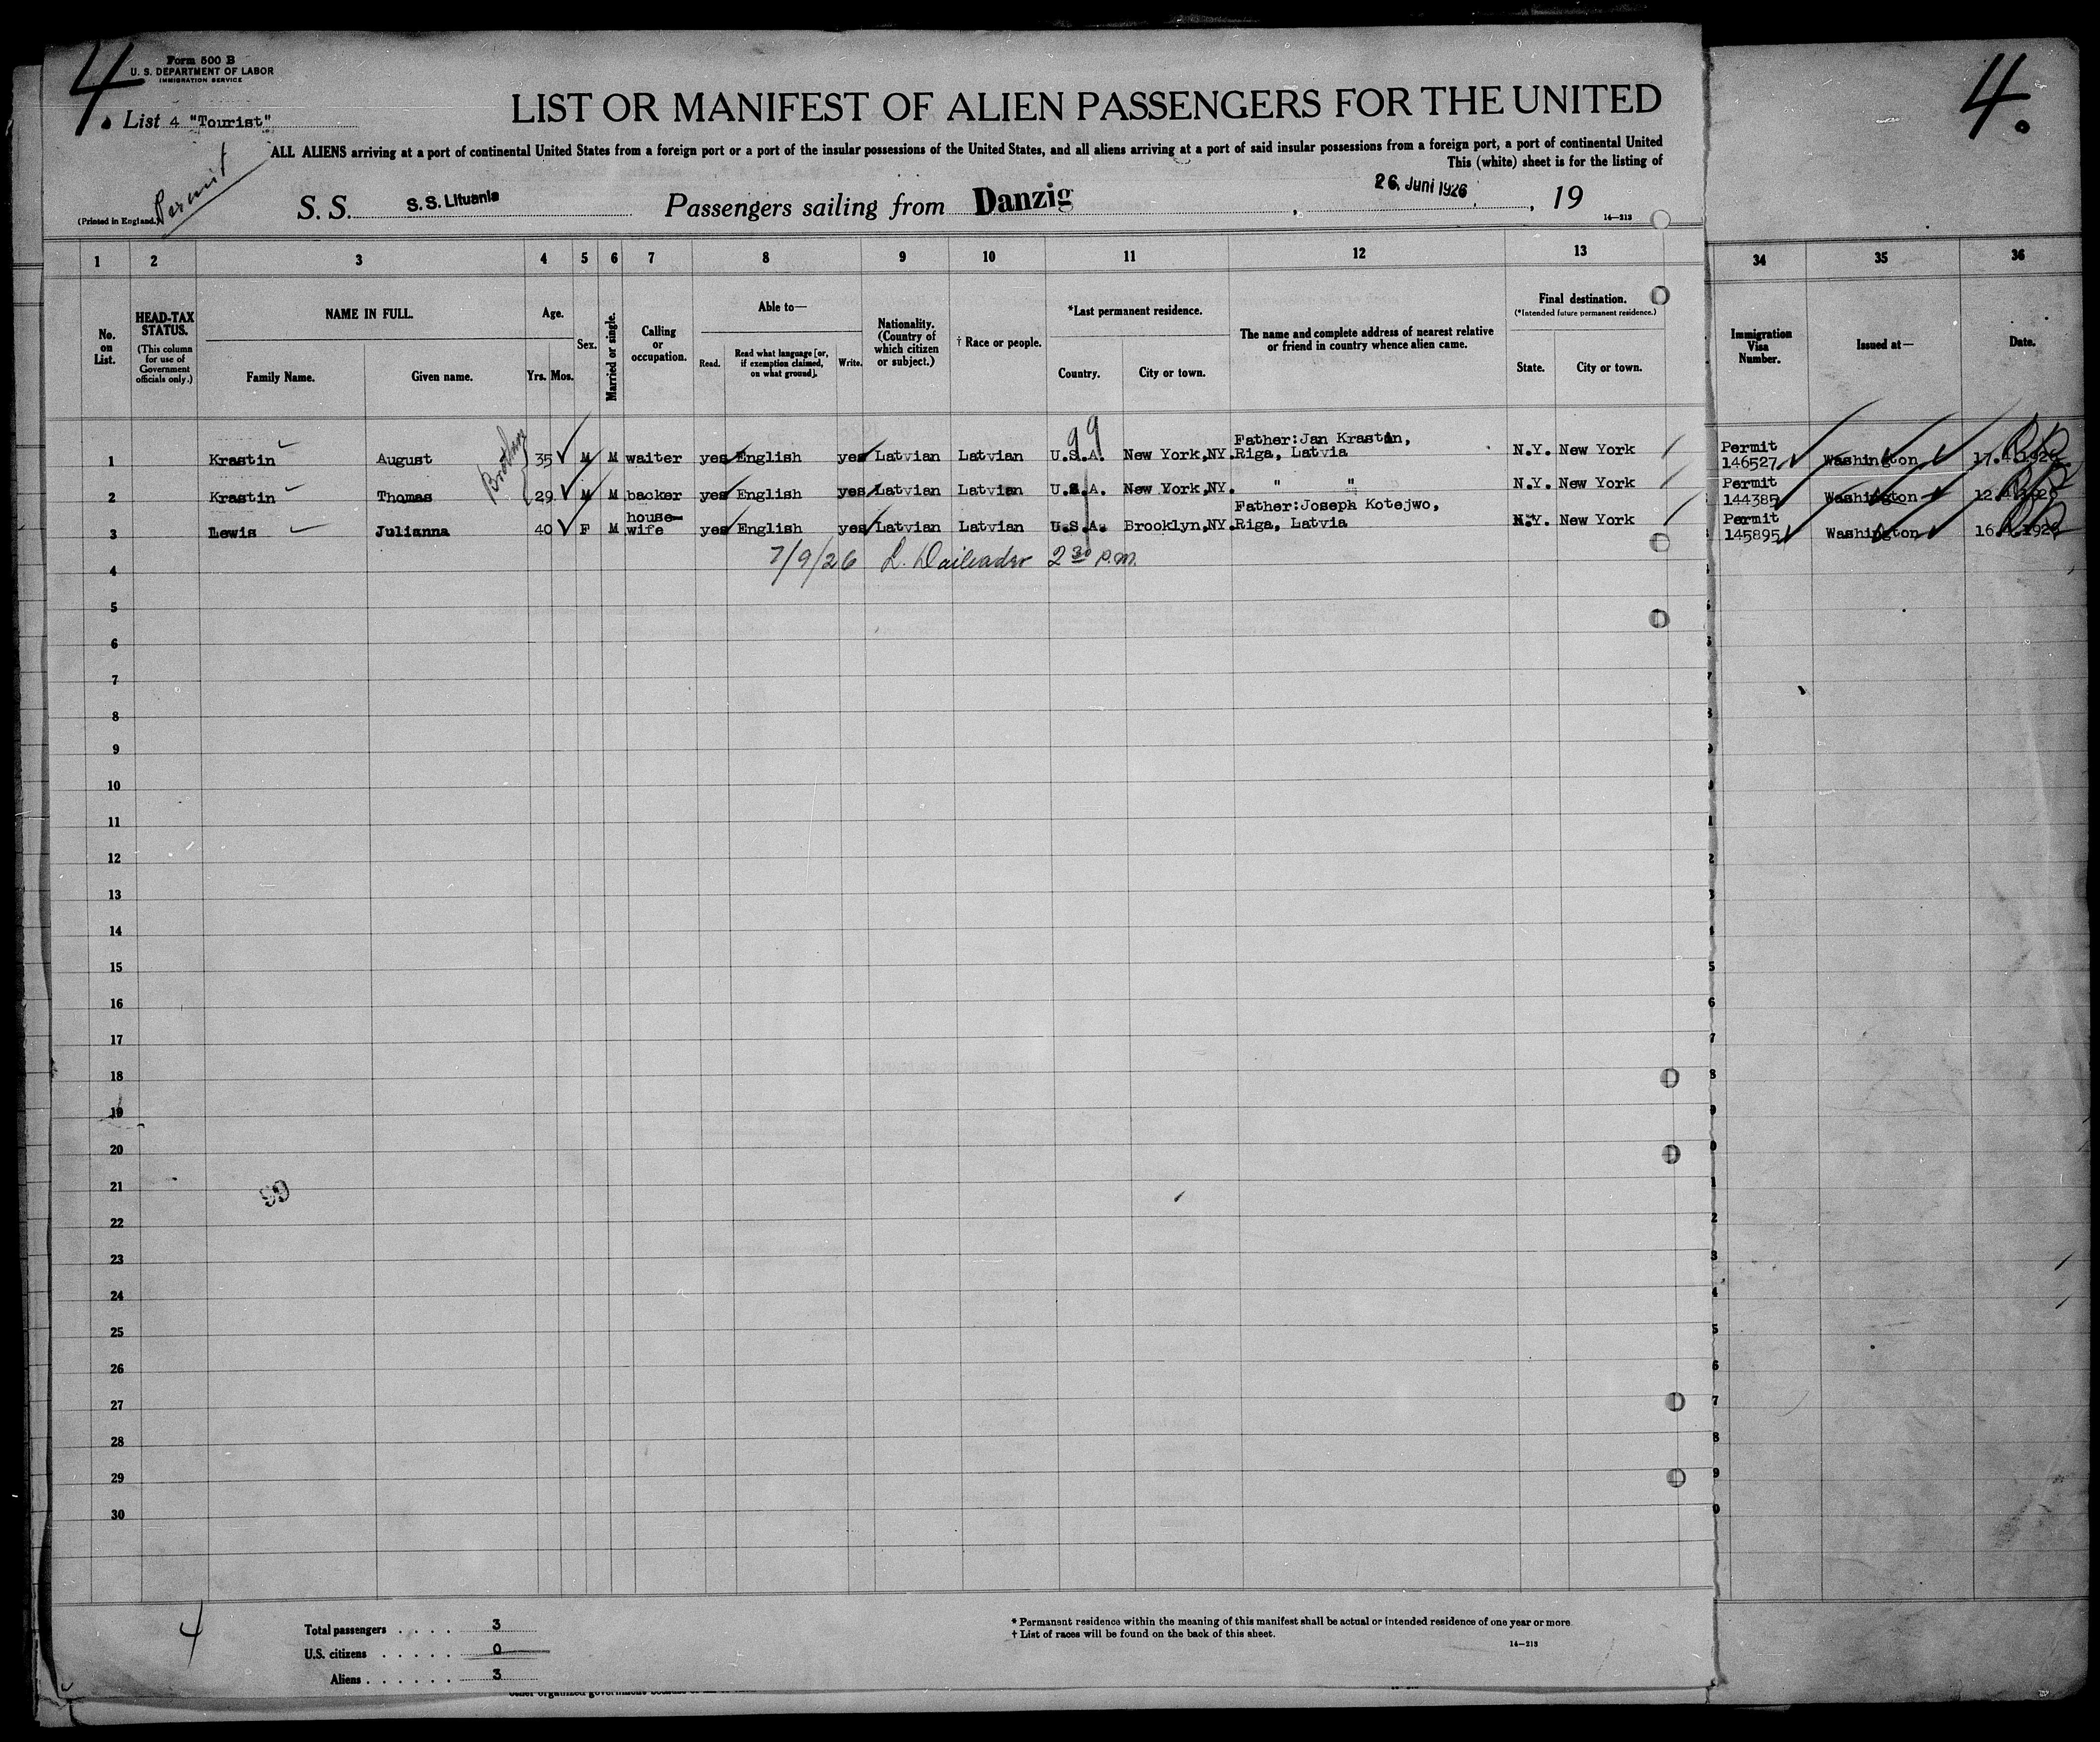 4.
Form 500 B
U. S. DEPARTMENT OF LABOR
IMMIGRATION SERVICE
List 4 "Tourist"
Permit
(Printed in England.)
LIST OR MANIFEST OF ALIEN PASSENGERS FOR THE UNITED
ALL ALIENS arriving at a port of continental United States from a foreign port or a port of the insular possessions of the United States, and all aliens arriving at a port of said insular possessions from a foreign port, a port of continental United
This (white) sheet is for the listing of
S. S. S. S. Lituania Passengers sailing from Danzig , 26. Juni 1926 , 19
14—213
4.
1 2 3 4 5 6 7 8 9 10 11 12 13 34 35 36
No. on List.
HEAD-TAX STATUS.
(This column for use of Government officials only.)
NAME IN FULL.
Family Name. Given name.
Age.
Yrs. Mos.
Sex.
Married or single.
Calling or occupation.
Able to—
Read. Read what language [or, if exemption claimed, on what ground]. Write.
Nationality. (Country of which citizen or subject.)
† Race or people.
*Last permanent residence.
Country. City or town.
The name and complete address of nearest relative or friend in country whence alien came.
Final destination.
(*Intended future permanent residence.)
State. City or town.
Immigration Visa Number.
Issued at—
Date.
99
Father:Jan Krastin,
1 Krastin August 35 M M waiter yes English yes Latvian Latvian U.S.A. New York,NY. Riga, Latvia N.Y. New York Permit 146527 Washington
2 Krastin Thomas 29 M M backer yes English yes Latvian Latvian U.S.A. New York,NY. " " N.Y. New York Permit 144385 Washington
Father:Joseph Kotejwo,
3 Lewis Julianna 40 F M house-wife yes English yes Latvian Latvian U.S.A. Brooklyn,NY. Riga, Latvia N.Y. New York Permit 145895 Washington
4 7/9/26 2 30 p.m.
5
6
7
8
9
10
11
12
13
14
15
16
17
18
19
20
21
99
22
23
24
25
26
27
28
29
30
4
Total passengers . . . . 3
U.S. citizens . . . . . 0
Aliens . . . . . . 3
* Permanent residence within the meaning of this manifest shall be actual or intended residence of one year or more.
† List of races will be found on the back of this sheet.
14—213